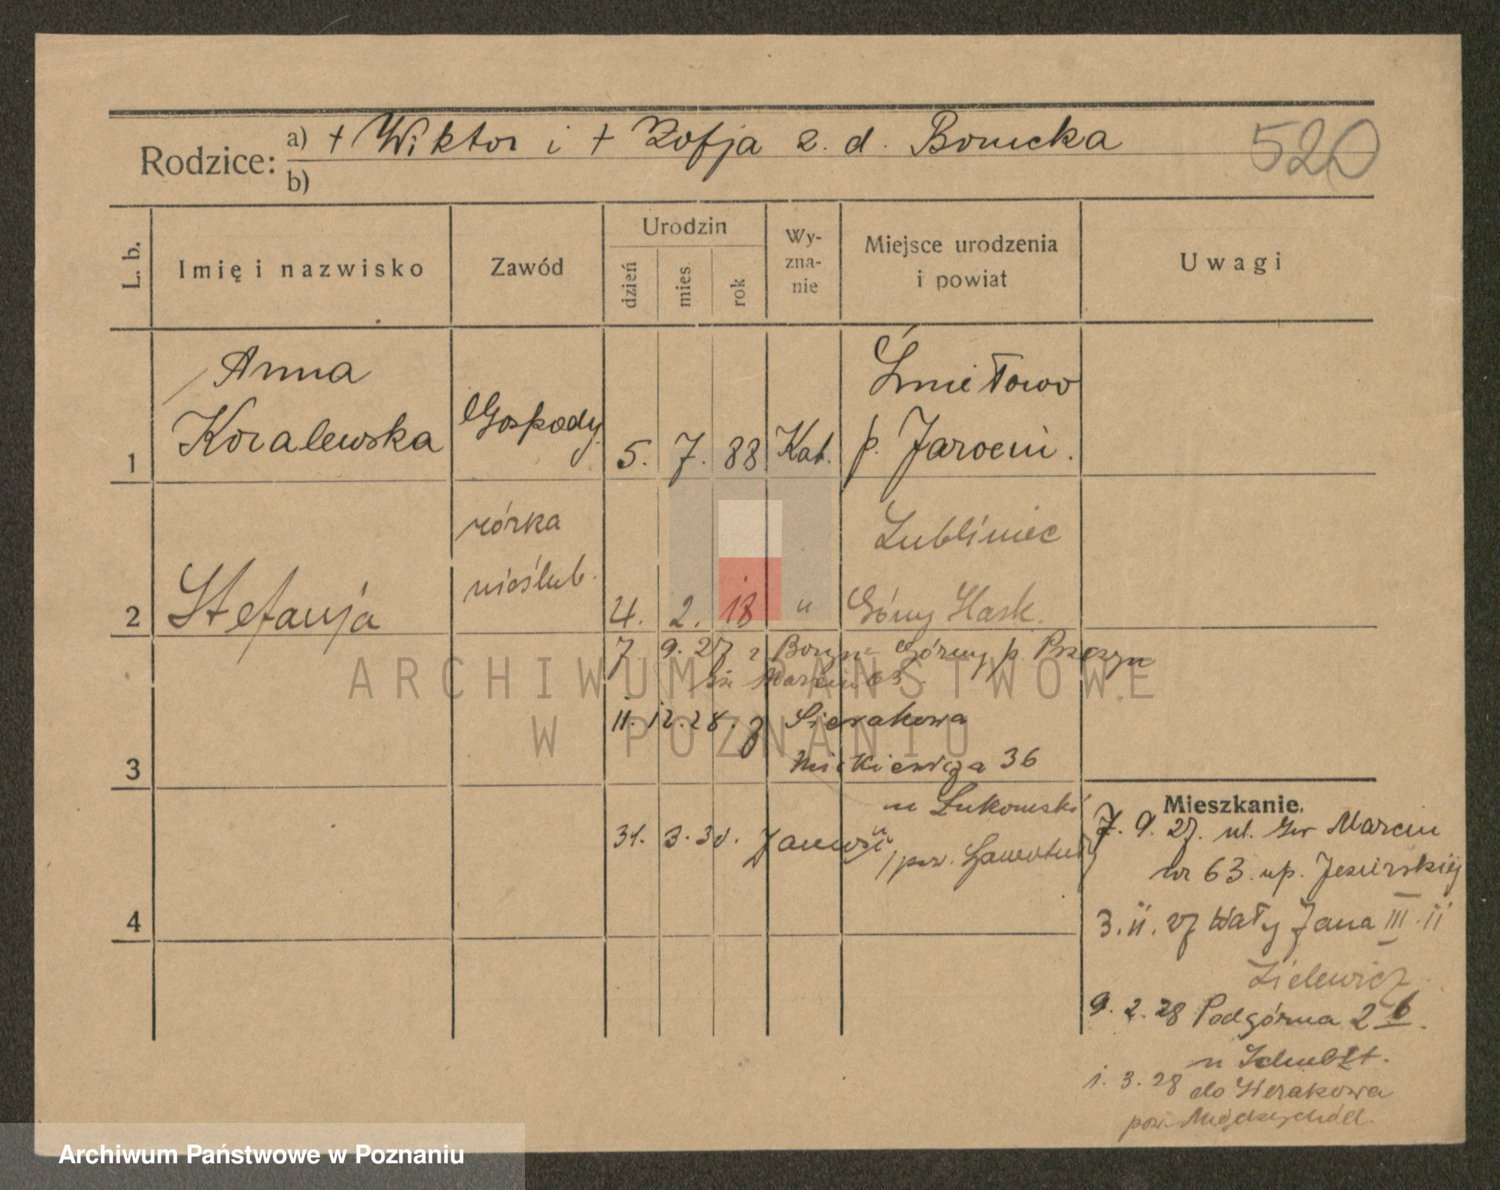 Rodzice: a) + Wiktor i + Zofja z. d. Borucka
520
b)
L. b.
Imię i nazwisko
Zawód
Urodzin
dzień
mies
rok
Wy-
zna-
nie
Miejsce urodzenia
i powiat
Uwagi
1
Anna
Koralewska
Gospody.
5. 7. 88
Kat.
Śmiełowo
p. Jarocin.
2
Stefanja
córka
nieślub.
4. 2. 18
"
Lubliniec
Górny Ślask.
7 9. 27 z Górny p. Pszczyn
Św Marcin 63
3
11. 12. 28. z Sierakowa
Mickiewicza 36
u Łukomski
31. 3. 30.
4
Mieszkanie.
7. 9. 27. ul. Św Marcin
nr 63. up. Jezierskiej
3. 11. 27 Wały Jana III 11
Zielewicz
9. 2. 28 Podgórna 2 b.
u Schubst.
1. 3. 28 do Sierakowa
pow. Międzychód.
ARCHIWUM PAŃSTWOWE
W POZNANIU
Archiwum Państwowe w Poznaniu